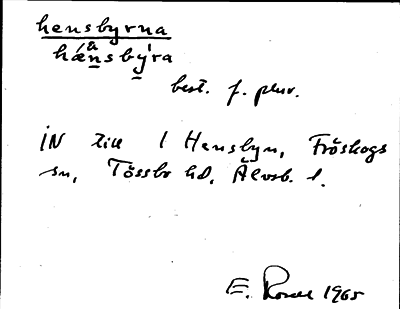 hensbyrna
hǽnsbýra
best. f. plur.
IN till 1 Hensbyn, Fröskogs
sn, Tössbo hd, Älvsb. l.
E. 1965